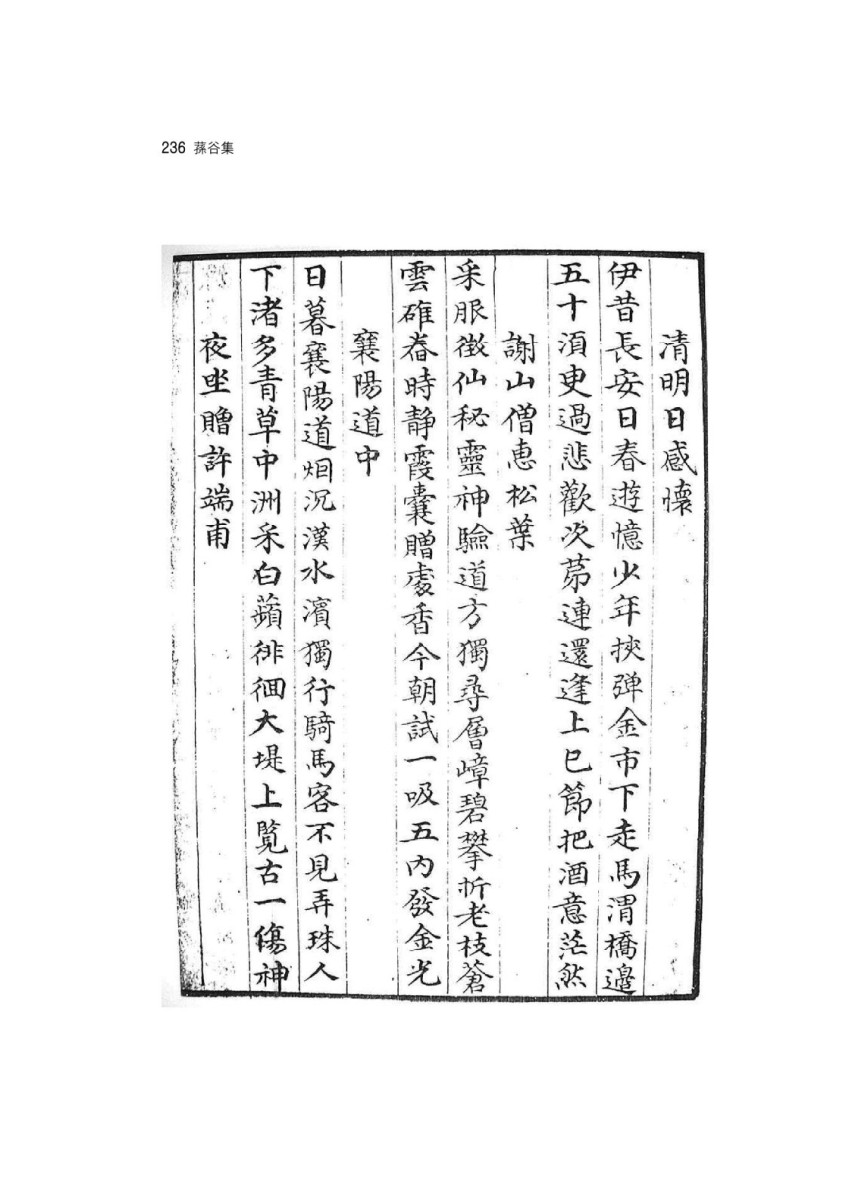 236 蓀谷集
清明日感懷
伊昔長安日春遊憶少年挾弹金市下走馬渭橋邉
五十湏臾過悲歡次苐連還逢上巳節把酒意茫然
謝山僧惠松葉
采服徵仙秘靈神驗道方獨尋層嶂碧攀折老枝蒼
雲碓舂時静霞囊贈處香今朝試一吸五内發金光
襄陽道中
日暮襄陽道烟沉漢水濱獨行騎馬客不見弄珠人
下渚多青草中洲采白蘋徘徊大堤上覽古一傷神
夜坐贈許端甫